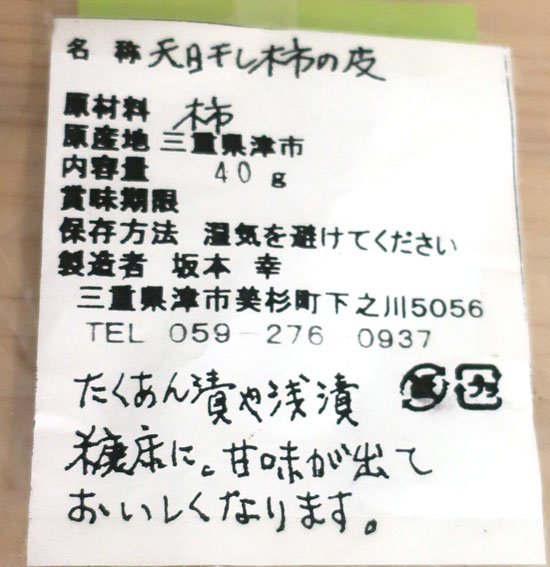 名 称 天日干し柿の皮
原材料 柿
原産地 三重県津市
内容量 40 g
賞味期限
保存方法 湿気を避けてください
製造者 坂本 幸
三重県津市美杉町下之川5056
TEL 059-276 0937
たくあん漬や浅漬
糠床に。甘味が出て
おいしくなります。